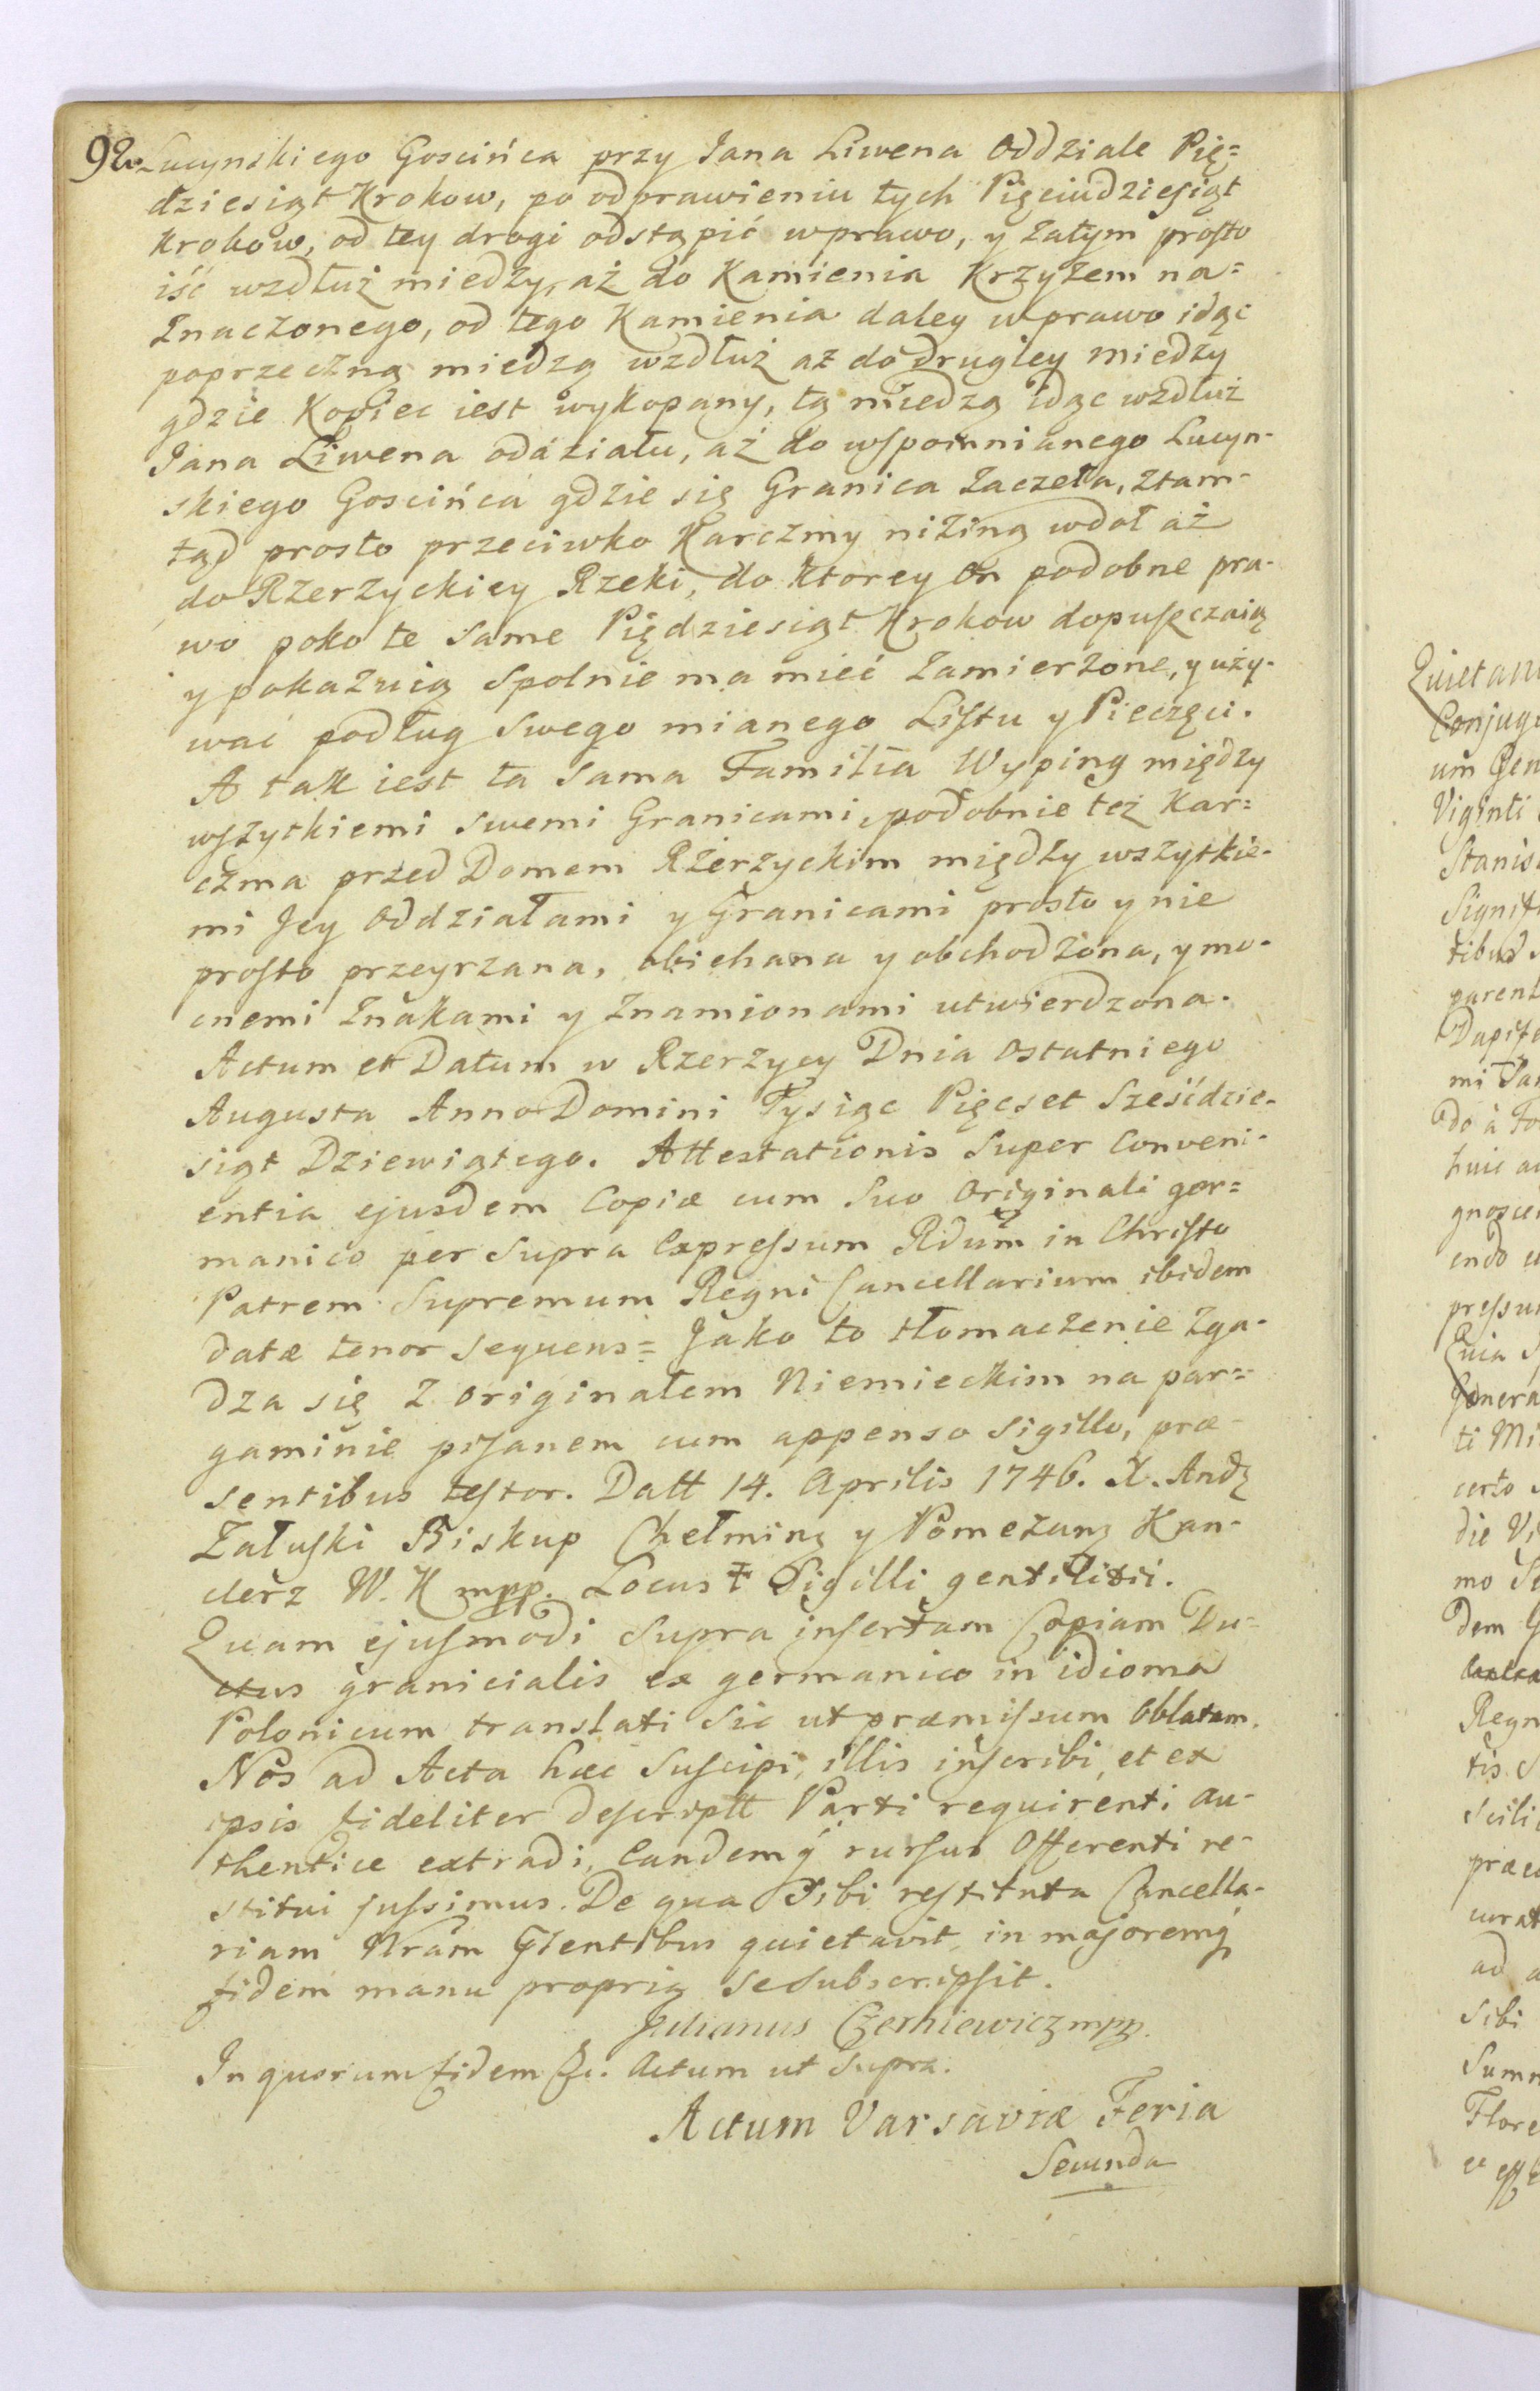 92. Lucynskiego Gościńca przy Jana Liwena Oddziale Pię=
dziesiąt Krokow, po odprawieniu tych Pięciudziesiąt
Krokow, od tey drogi odstąpić wprawo, y zatym prosto
iść wzdłuż miedzy, aż do Kamienia Krzyżem na=
znaczonego, od tego Kamienia daley wprawo idąc
poprzeczną miedzą wzdłuż aż do drugiey miedzy
gdzie Kopiec iest wykopany, tą miedzą idąc wzdłuż
Jana Liwena oddziału, aż do wspomnianego Lucyn-
skiego Gościńca gdzie się Granica zaczeła, ztam-
tąd prosto przeciwko Karczmy niziną wdoł aż
do Rzerzyckiey Rzeki, do Ktorey on podobne pra-
wo poko te same Piędziesiąt Krokow dopuszczaią
y pokazuią spolnie ma mieć zamierzone, y uży-
wać podług swego mianego Listu y Pieczęci.
A tak iest ta sama Familia Wyping między
wszytkiemi swemi Granicami, podobnie też Kar=
czma przed Domem Rzerzyckim między wszytkie-
mi Jey Oddziałami y Granicami prosto y nie
prosto przeyrzana, obiehana y obchodzona, y mo-
cnemi znakami y znamionami utwierdzona.
Actum et Datum w Rzerzycy Dnia ostatniego
Augusta Anno Domini Tysiąc Pięcset Sześćdzie-
siąt Dziewiątego. Attestationis super Conveni-
entia ejusdem Copiæ cum suo Originali ger=
manico per supra expressum Rdum in Christo
Patrem Supremum Regni Cancellarium ibidem
datæ tenor sequens = Jako to tłomaczenie zga-
dza się z originałem Niemieckim na par=
gaminie pisanem cum appenso sigillo, præ-
sentibus testor. Datt 14. Aprilis 1746. X. Andz
Załuski Biskup Chełminz y Pomezanz Kan-
clerz W. K mpp. Locus ± Sigilli gentilitii.
Quam ejusmodi supra insertam Copiam Du-
ctus granicialis ex germanico in idioma
Polonicum translati sic ut præmissum oblatam.
Nos ad Acta hæc suscipi, illis inscribi, et ex
ipsis fideliter descriptt Parti requirenti au-
thentice extradi, eandemq́ rursus Offerenti re-
stitui jussimus. De qua sibi restituta Cancella-
riam Nram Gientibus quietavit, in majoremq́
fidem manu proprią se subscripsit.
Julianus Czerniewicz mpp.
In quorum fidem &c. Actum ut supra.
Actum Varsaviæ Feria
Secunda
Quietan
Conjug
um Gen
Viginti
Stanis
Signif
tibus
parent
Dapife
mi
do à
huic a
gnosce
endo
pressu
Quia
Genera
ti Mi
certo
die Vi
mo Se
dem
Regn
tis
scili
præ
curat
ad
sibi
Summ
Flore